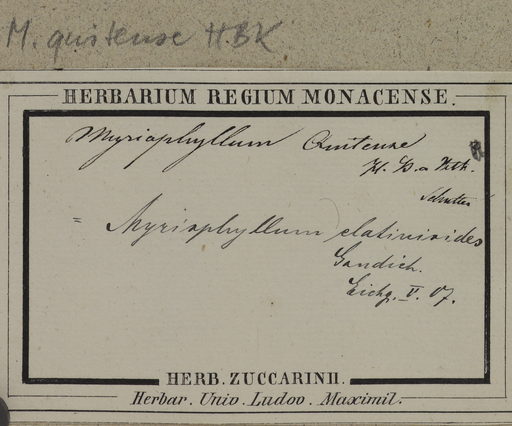 M. quitense HBK
HERBARIUM REGIUM MONACENSE.
Myriophyllum Quitense
H. B. & Kth.
= Myriophyllum elatinioides
Gaudich.
V. 07.
HERB. ZUCCARINII.
Herbar. Univ. Ludov. Maximil.